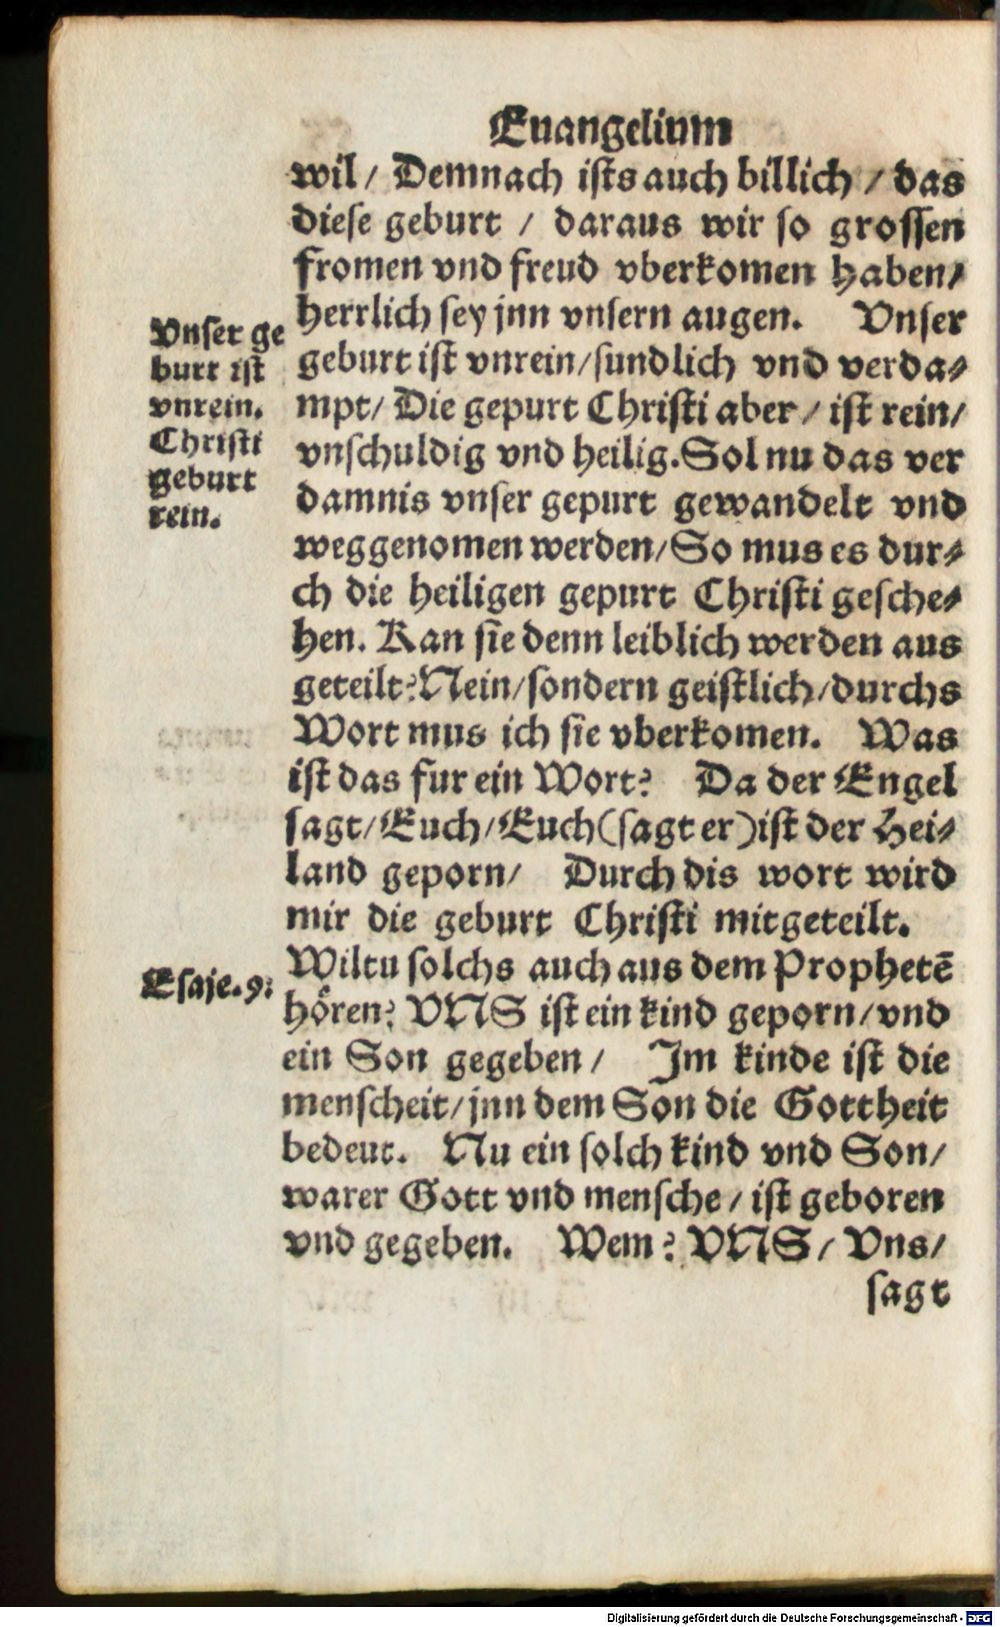 Euangelium
wil / Demnach ists auch billich / das
diese geburt / daraus wir so grossen
fromen vnd freud vberkomen haben /
herrlich sey jnn vnsern augen. Vnser
geburt ist vnrein / sundlich vnd verda⸗
mpt / Die gepurt Christi aber / ist rein /
vnschuldig vnd heilig. Sol nu das ver
damnis vnser gepurt gewandelt vnd
weggenomen werden / So mus es dur⸗
ch die heiligen gepurt Christi gesche⸗
hen. Kan sie denn leiblich werden aus
geteilt? Nein / sondern geistlich / durchs
Wort mus ich sie vberkomen. Was
ist das fur ein Wort? Da der Engel
sagt / Euch / Euch (sagt er) ist der Hei⸗
land geporn / Durch dis wort wird
mir die geburt Christi mitgeteilt.
Wiltu solchs auch aus dem Prophetē
hoͤren? VNS ist ein kind geporn / vnd
ein Son gegeben / Im kinde ist die
menscheit / jnn dem Son die Gottheit
bedeut. Nu ein solch kind vnd Son /
warer Gott vnd mensche / ist geboren
vnd gegeben. Wem? VNS / Vns /
sagt
Vnser ge
burt ist
vnrein.
Christi
geburt
rein.
Esaje. 9.
Digitalisierung gefördert durch die Deutsche Forschungsgemeinschaft - DFG